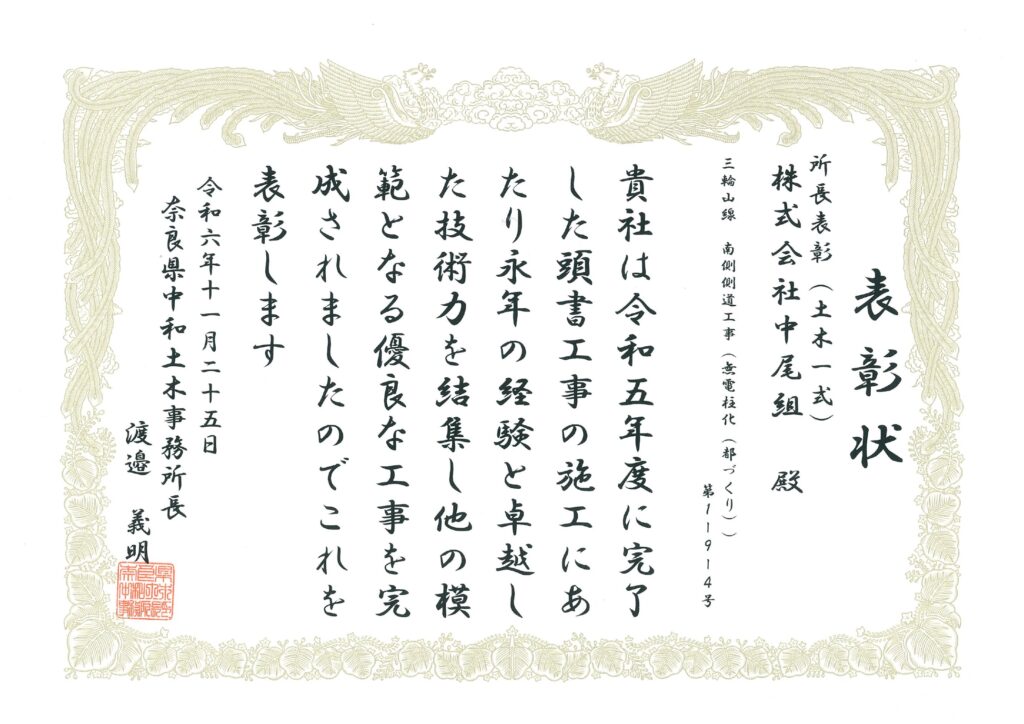 表彰状
所長表彰（土木一式）
株式会社中尾組　殿
三輪山線　南側側道工事（無電柱化（都づくり））
第11914号
貴社は令和五年度に完了
した頭書工事の施工にあ
たり永年の経験と卓越し
た技術力を結集し他の模
範となる優良な工事を完
成されましたのでこれを
表彰します
令和六年十一月二十五日
奈良県中和土木事務所長
渡邉　義明